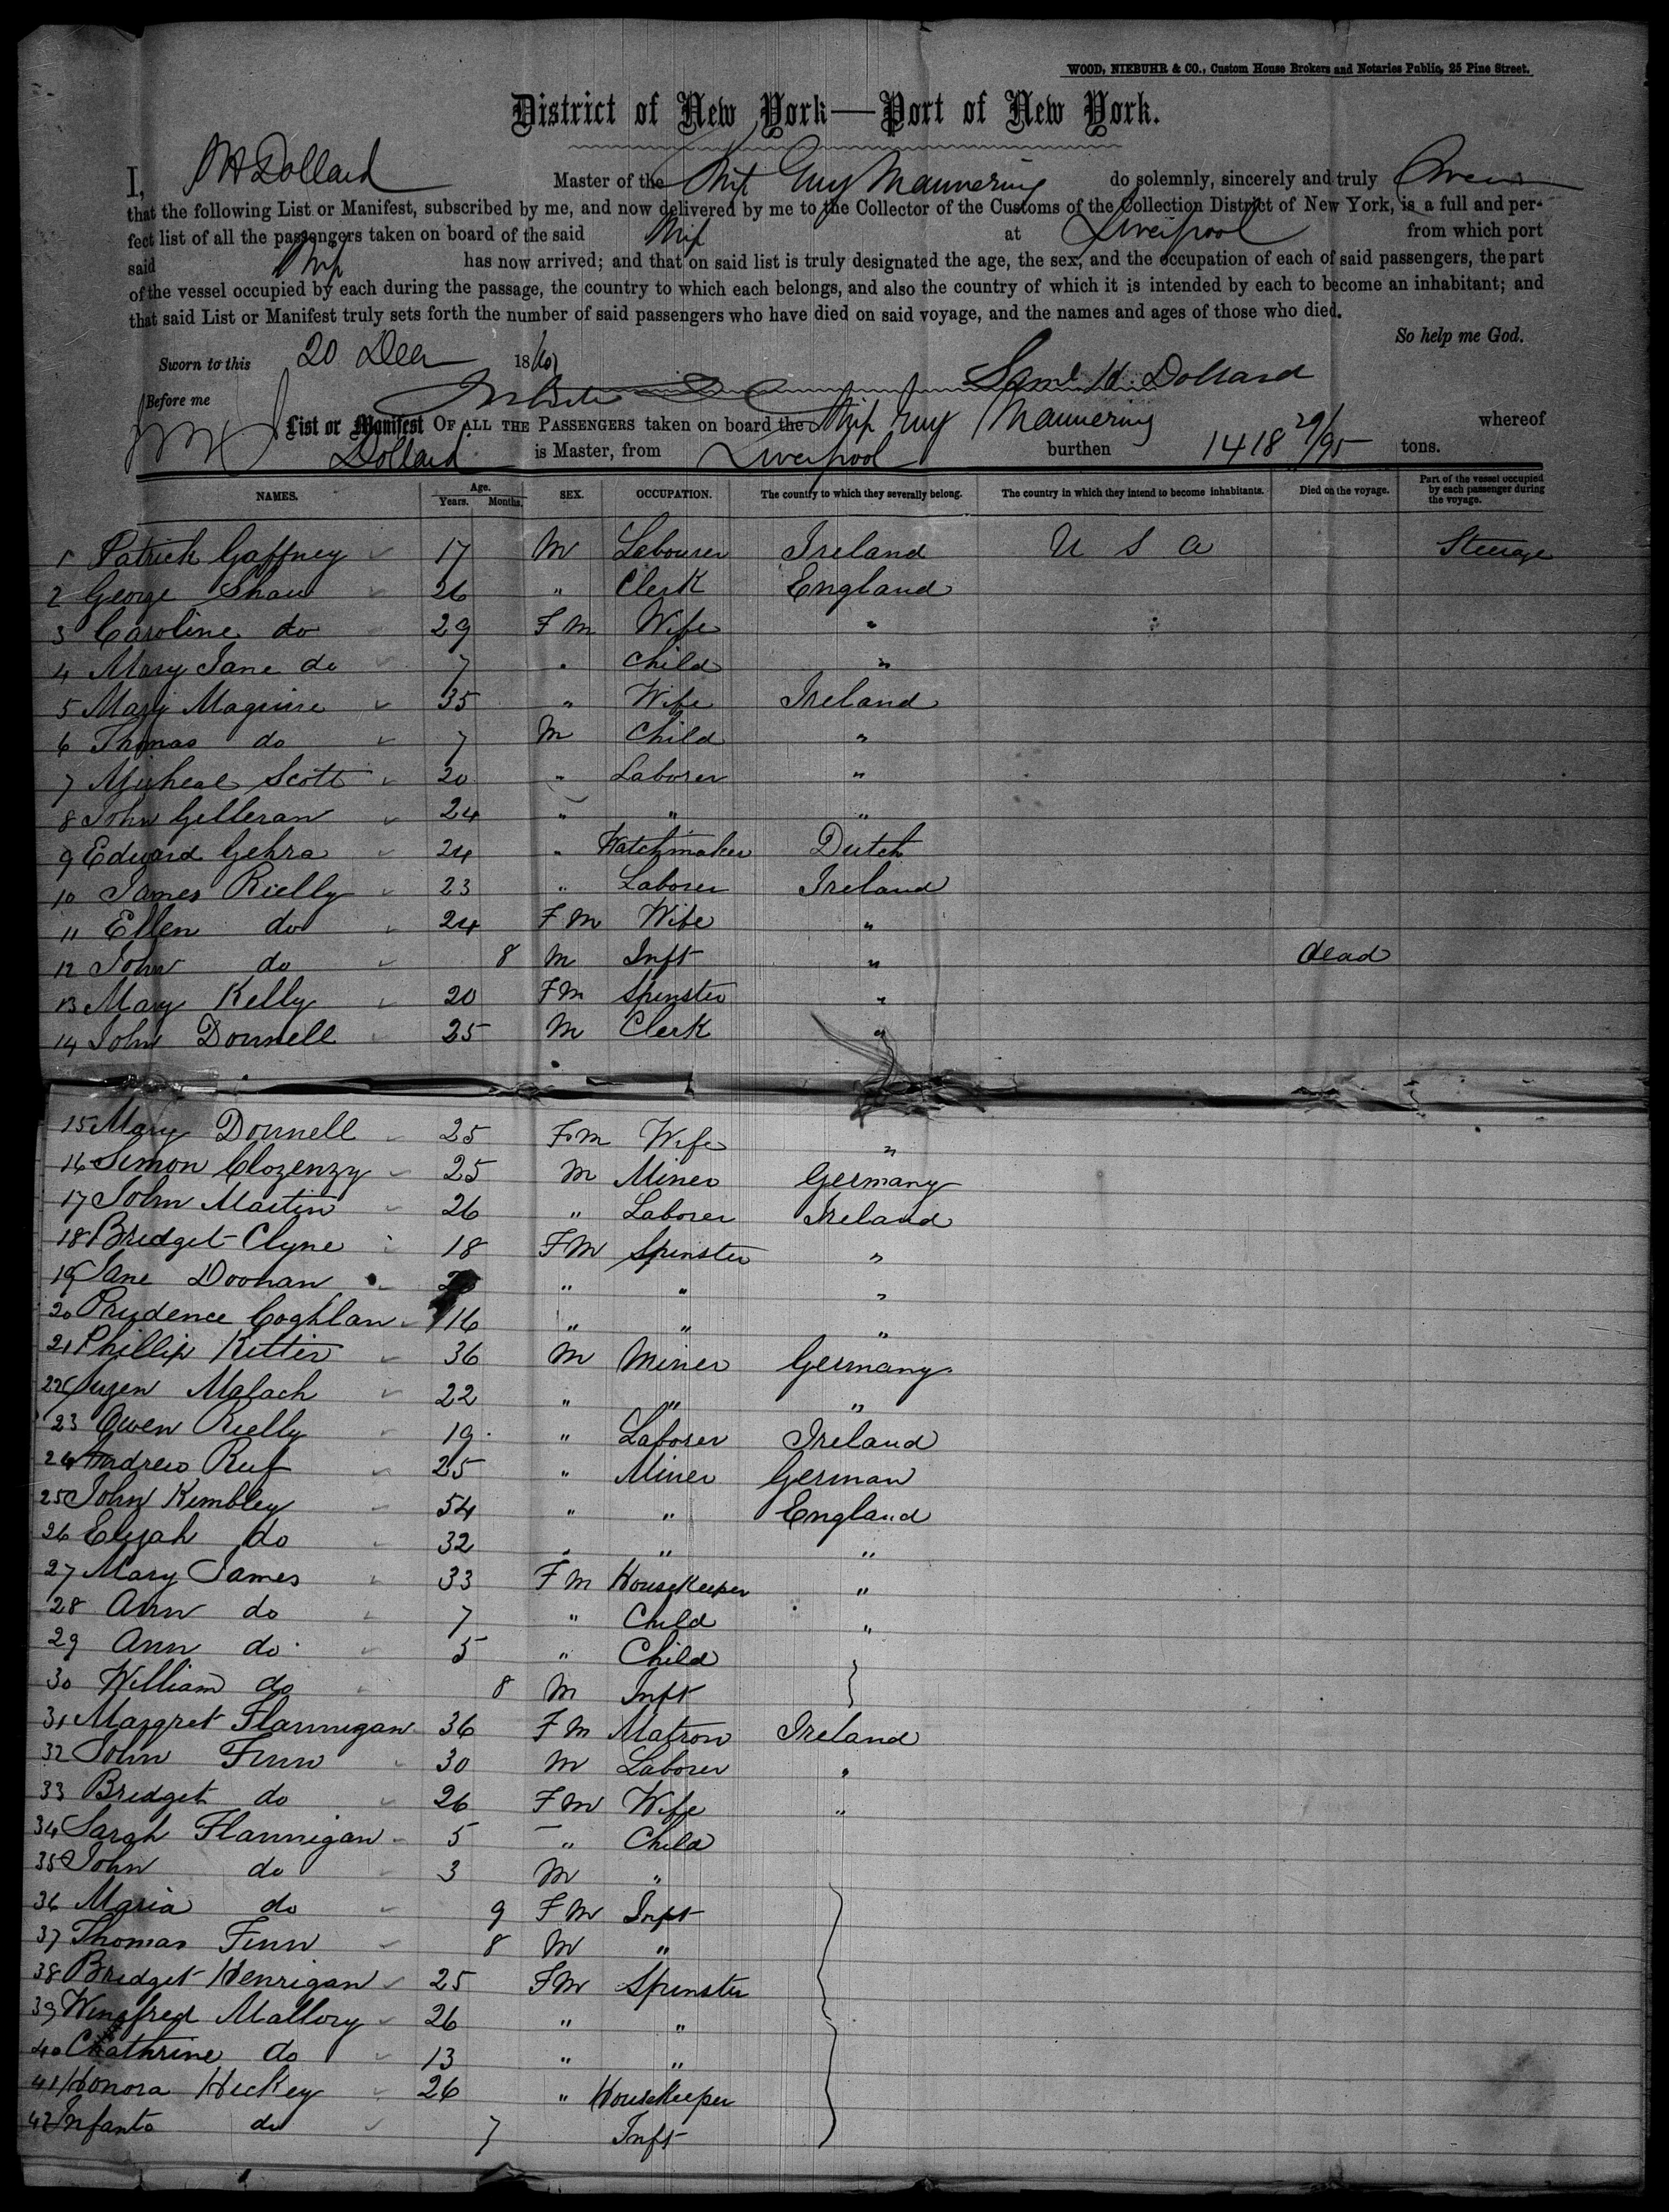 WOOD, NIEBUHR & CO., Custom House Brokers and Notaries Public, 25 Pine Street.
District of New York—Port of New York.
I, Dollard Master of the Ship Guy Mannering do solemnly, sincerely and truly Swear
that the following List or Manifest, subscribed by me, and now delivered by me to the Collector of the Customs of the Collection District of New York, is a full and per-
fect list of all the passengers taken on board of the said Ship at Liverpool from which port
said Ship has now arrived; and that on said list is truly designated the age, the sex, and the occupation of each of said passengers, the part
of the vessel occupied by each during the passage, the country to which each belongs, and also the country of which it is intended by each to become an inhabitant; and
that said List or Manifest truly sets forth the number of said passengers who have died on said voyage, and the names and ages of those who died.
So help me God.
Sworn to this 20 Decr 1860
Saml H. Dollard
Before me
List or Manifest OF ALL THE PASSENGERS taken on board the Ship Guy Mannering whereof
Dollard is Master, from Liverpool burthen 1418 29/95 tons.
NAMES. Age. Years. Months. SEX. OCCUPATION. The country to which they severally belong. The country in which they intend to become inhabitants. Died on the voyage. Part of the vessel occupied by each passenger during the voyage.
1 Patrick Gaffney 17 M Labourer Ireland U S A Steerage
2 George Shaw 26 " Clerk England
3 Caroline do 29 F M Wife "
4 Mary Jane do 7 " Child "
5 Mary Maguire 35 " Wife Ireland
6 Thomas do 7 M Child "
7 Micheal Scott 20 " Laborer "
8 John Gilleran 24 " " "
9 Edward Gehra 24 " Watchmaker Dutch
10 James Rielly 23 " Laborer Ireland
11 Ellen do 24 F M Wife "
12 John do 8 M Inft " dead
13 Mary Kelly 20 F M Spinster "
14 John Donnell 25 M Clerk "
15 Mary Donnell 25 F M Wife "
16 Simon Clozenzy 25 M Miner Germany
17 John Martin 26 " Laborer Ireland
18 Bridget Clyne 18 F M Spinster "
19 Jane Doonan " " "
20 Prudence Coghlan 16 " " "
21 Phillip Kitter 36 M Miner Germany
22 Malach 22 " " "
23 Owen Rielly 19 " Laborer Ireland
24 Andrew Ruf 25 " Miner German
25 John Kimbley 54 " " England
26 Elijah do 32 " " "
27 Mary James 33 F M Housekeeper "
28 Ann do 7 " Child "
29 Ann do 5 " Child
30 William do 8 M Inft
31 Margret Flannigan 36 F M Matron Ireland
32 John Finn 30 M Laborer "
33 Bridget do 26 F M Wife "
34 Sarah Flannigan 5 " Child
35 John do 3 M "
36 Maria do 9 F M Inft
37 Thomas Finn 8 M "
38 Bridget Henrigan 25 F M Spinster
39 Winefred Mallory 26 " "
40 Cathrine do 13 " "
41 Honora Hickey 26 " Housekeeper
42 Infanto do 7 Inft